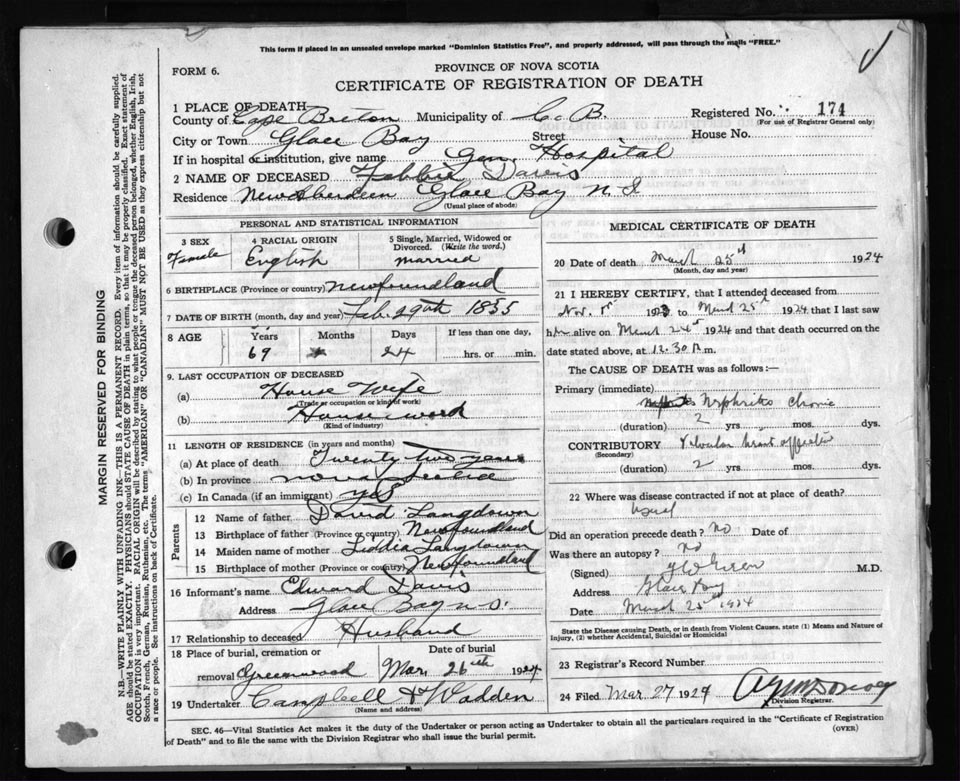 This form if placed in an unsealed envelope marked "Dominion Statistics Free", and properly addressed, will pass through the mails "FREE."
FORM 6.
PROVINCE OF NOVA SCOTIA
CERTIFICATE OF REGISTRATION OF DEATH
1 PLACE OF DEATH
County of Cape Breton Municipality of C. B. Registered No. 174
(For use of Registrar General only)
City or Town Glace Bay Street House No.
If in hospital or institution, give name Gen. Hospital
2 NAME OF DECEASED Davis
Residence New Aberdeen Glace Bay N. S
(Usual place of abode)
PERSONAL AND STATISTICAL INFORMATION
3 SEX Female
4 RACIAL ORIGIN English
5 Single, Married, Widowed or Divorced. (Write the word.) married
6 BIRTHPLACE (Province or country) Newfoundland
7 DATE OF BIRTH (month, day and year) Feb. 29th 1855
8 AGE Years Months Days If less than one day,
69 24 hrs. or min.
9. LAST OCCUPATION OF DECEASED
(a) House Wife
(Trade or occupation or kind of work)
(b) House work
(Kind of industry)
11 LENGTH OF RESIDENCE (in years and months)
(a) At place of death Twenty two years
(b) In province Nova Scotia
(c) In Canada (if an immigrant) yes
Parents
12 Name of father David Langdown
13 Birthplace of father (Province or country) Newfoundland
14 Maiden name of mother Liddia Langdown
15 Birthplace of mother (Province or country) Newfoundland
16 Informant's name Edward Davis
Address Glace Bay N.S.
17 Relationship to deceased Husband
18 Place of burial, cremation or removal Greenwood
Date of burial Mar. 26th 1924
19 Undertaker Campbell & Wadden
(Name and address)
MEDICAL CERTIFICATE OF DEATH
20 Date of death March 25th 1924
(Month, day and year)
21 I HEREBY CERTIFY, that I attended deceased from
Nov. 192 to March 25th 1924 that I last saw
her alive on March 24th 1924 and that death occurred on the
date stated above, at 12.30 m.
The CAUSE OF DEATH was as follows:—
Primary (immediate)
Nephritis Chronic
(duration) 2 yrs mos. dys.
CONTRIBUTORY Valvular heart affection
(Secondary)
(duration) 2 yrs mos. dys.
22 Where was disease contracted if not at place of death?
Did an operation precede death? no Date of
Was there an autopsy? no
(Signed) M.D.
Address Glace Bay
Date March 25th 1924
State the Disease causing Death, or in death from Violent Causes, state (1) Means and Nature of
Injury, (2) whether Accidental, Suicidal or Homicidal
23 Registrar's Record Number
24 Filed Mar 27 1924
Division Registrar.
SEC. 46—Vital Statistics Act makes it the duty of the Undertaker or person acting as Undertaker to obtain all the particulars required in the "Certificate of Registration
of Death" and to file the same with the Division Registrar who shall issue the burial permit.
(OVER)
MARGIN RESERVED FOR BINDING
N.B.—WRITE PLAINLY WITH UNFADING INK—THIS IS A PERMANENT RECORD. Every item of information should be carefully supplied.
AGE should be stated EXACTLY. PHYSICIANS should STATE CAUSE OF DEATH in plain terms, so that it may be properly classified. Exact statement of
OCCUPATION is very important. RACIAL ORIGIN will be described by stating to what people or tongue the deceased person belonged, whether English, Irish,
Scotch, French, German, Russian, Ruthenian, etc. The terms "AMERICAN" or "CANADIAN" MUST NOT BE USED as they express citizenship but not
a race or people. See instructions on back of Certificate.